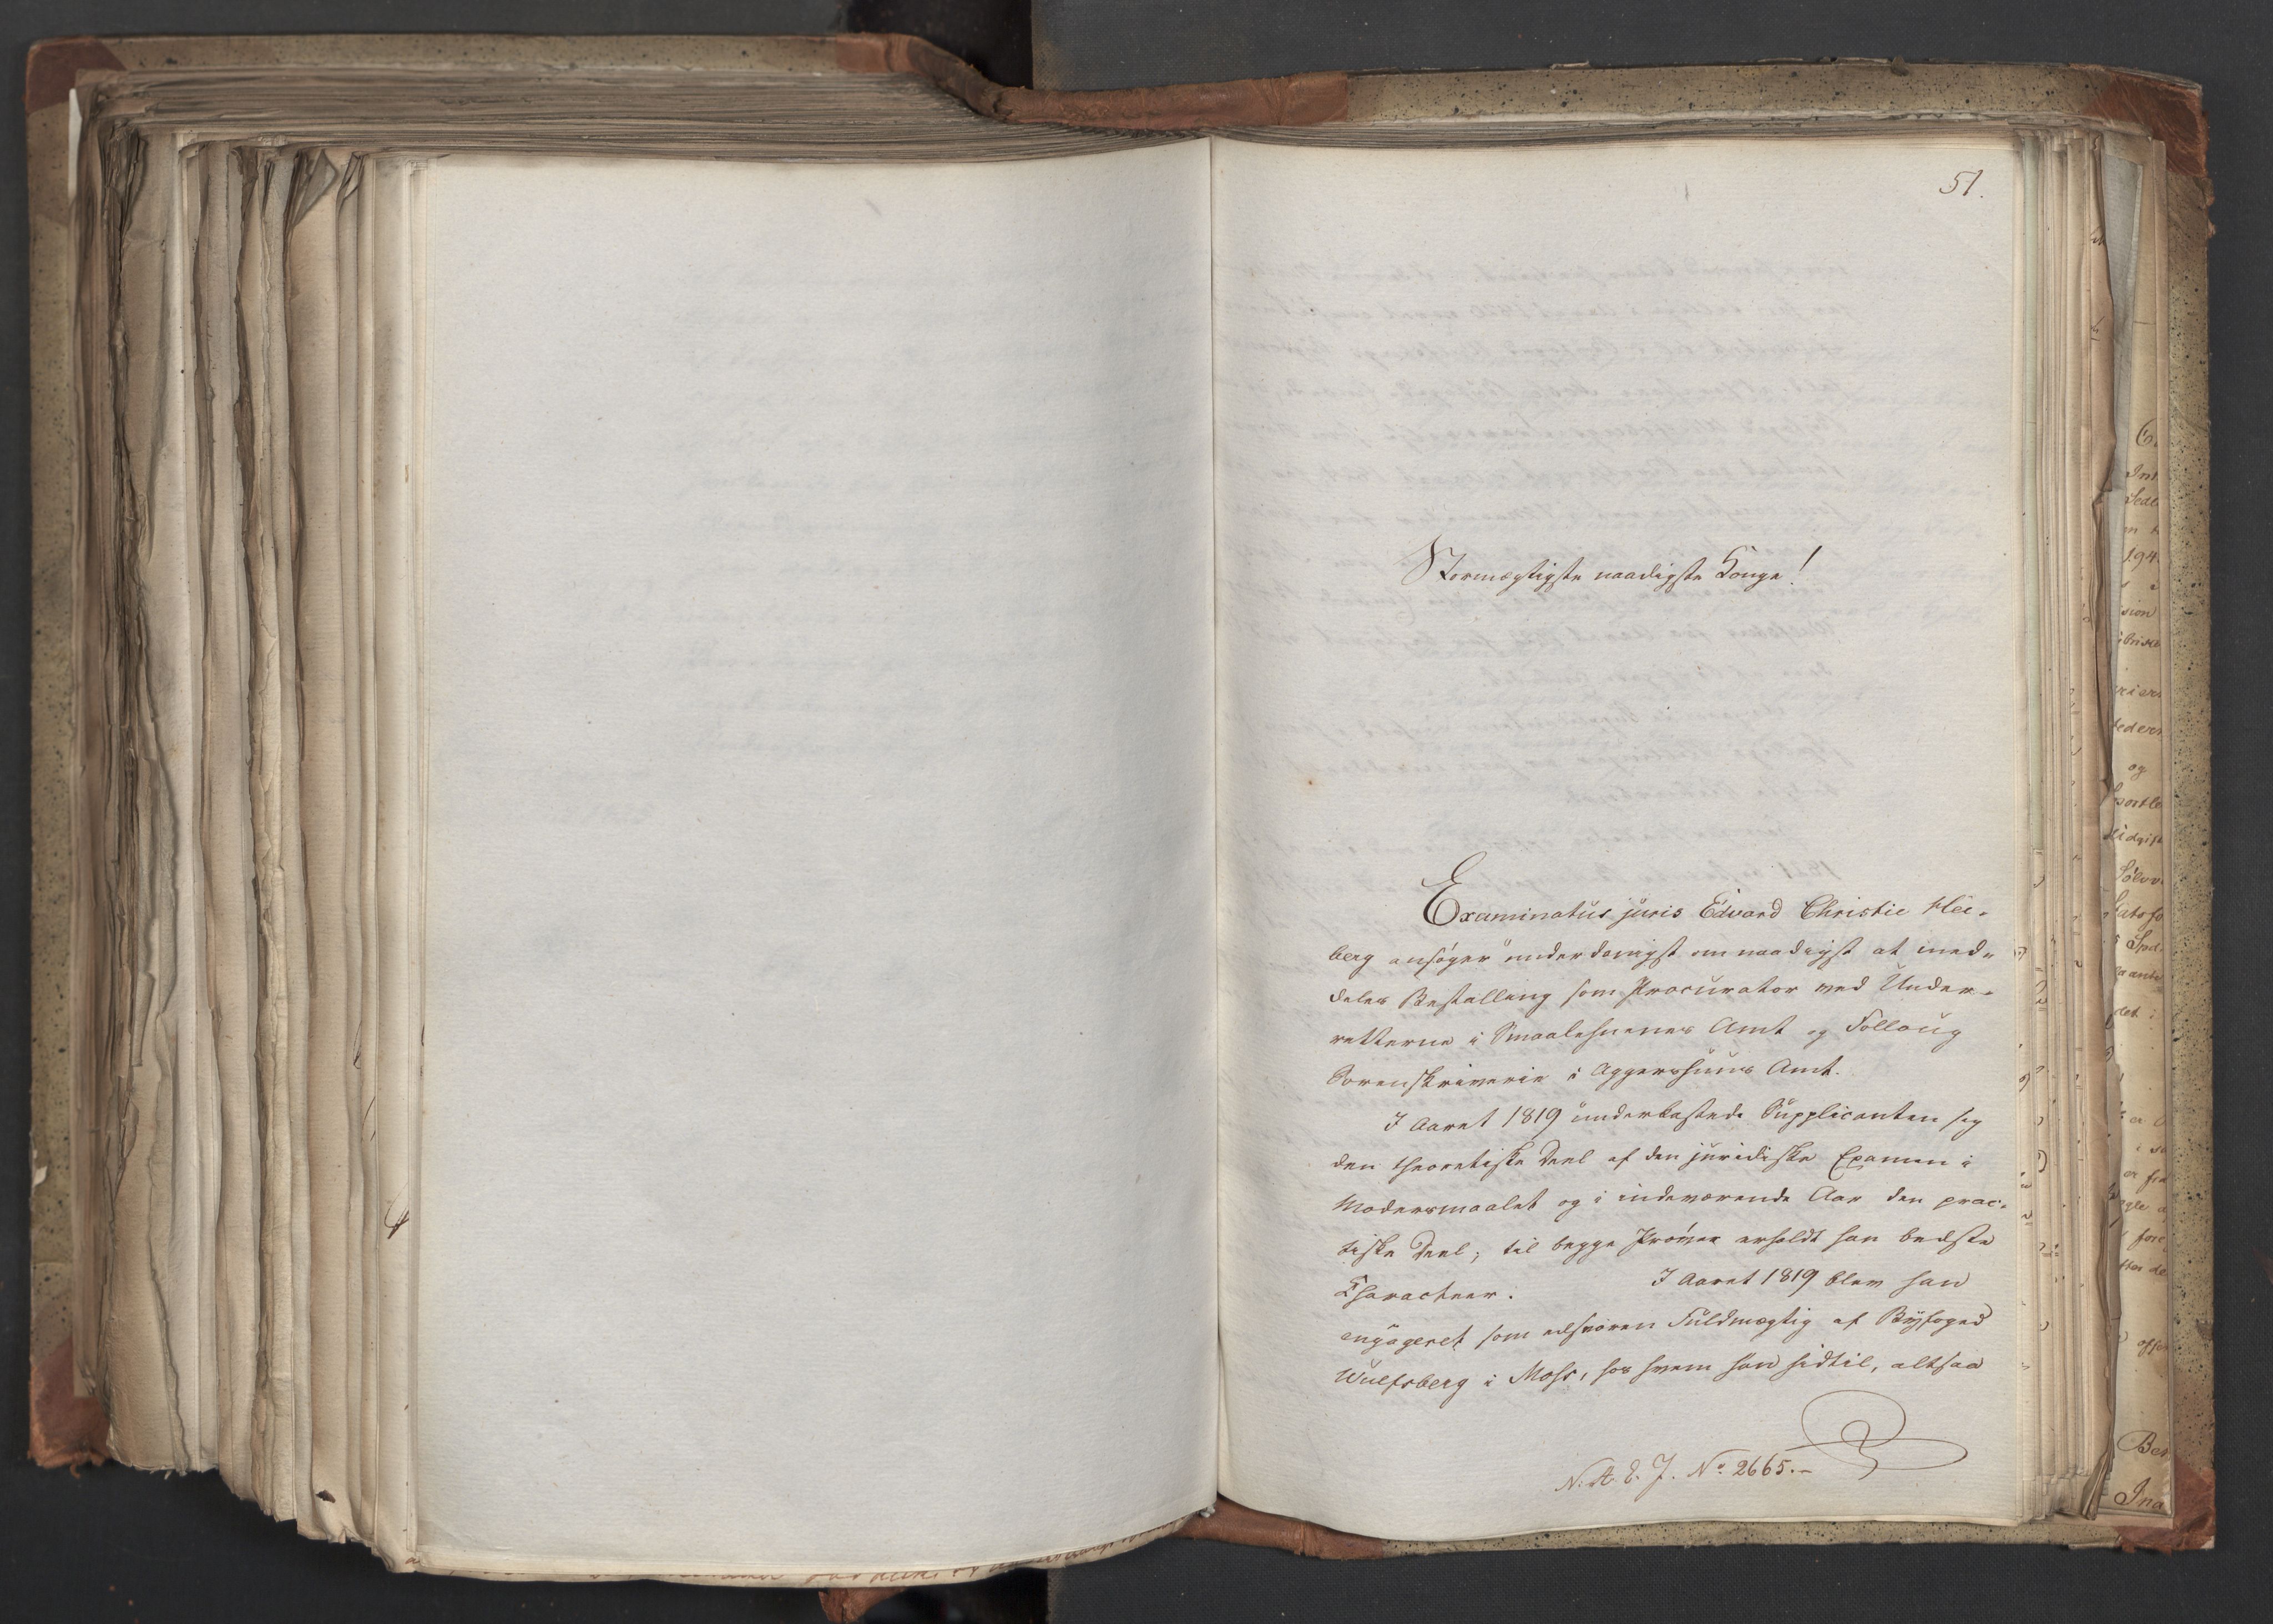 51.
Stormægtigste naadigste Konge!
Examinatus juris Edvard Christie Hei-
berg ansøger underdanigst om naadigst at med-
deles Bestalling som Procurator ved Under-
retterne i Smaalehnenes Amt og Folloug
Sorenskriverie i Aggershuus Amt.
I Aaret 1819 underkastede Supplicanten sig
den theoretiske Deel af den juridiske Examen i
Modersmaalet og i indeværende Aar den prac-
tiske Deel; til begge Prøver erholdt han bedste
Characteer. I Aaret 1819 blev han
engageret som edsvoren Fuldmægtig af Byfoged
Wulfsberg i Moss, hos hvem han hidtil, altsaa
N. A. E. J. No 2665.-